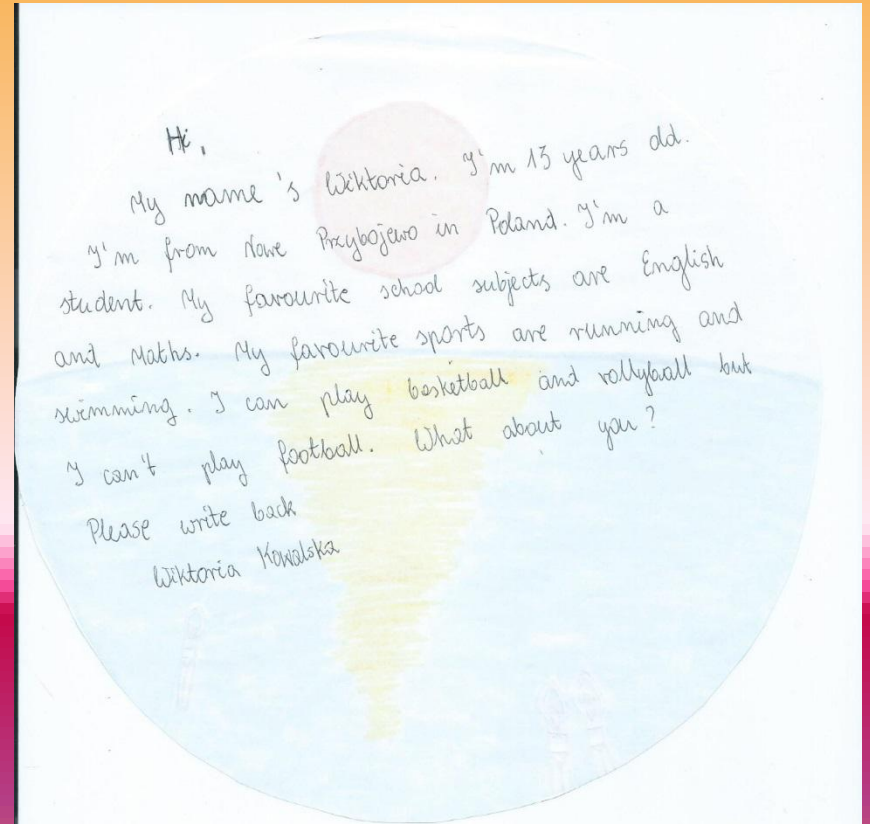 Hi,
My name's Wiktoria. I'm 13 years old.
I'm from Nowe Przybojewo in Poland. I'm a
student. My favourite school subjects are English
and Maths. My favourite sports are running and
swimming. I can play basketball and vollyball but
I can't play football. What about you?
Please write back
Wiktoria Kowalska